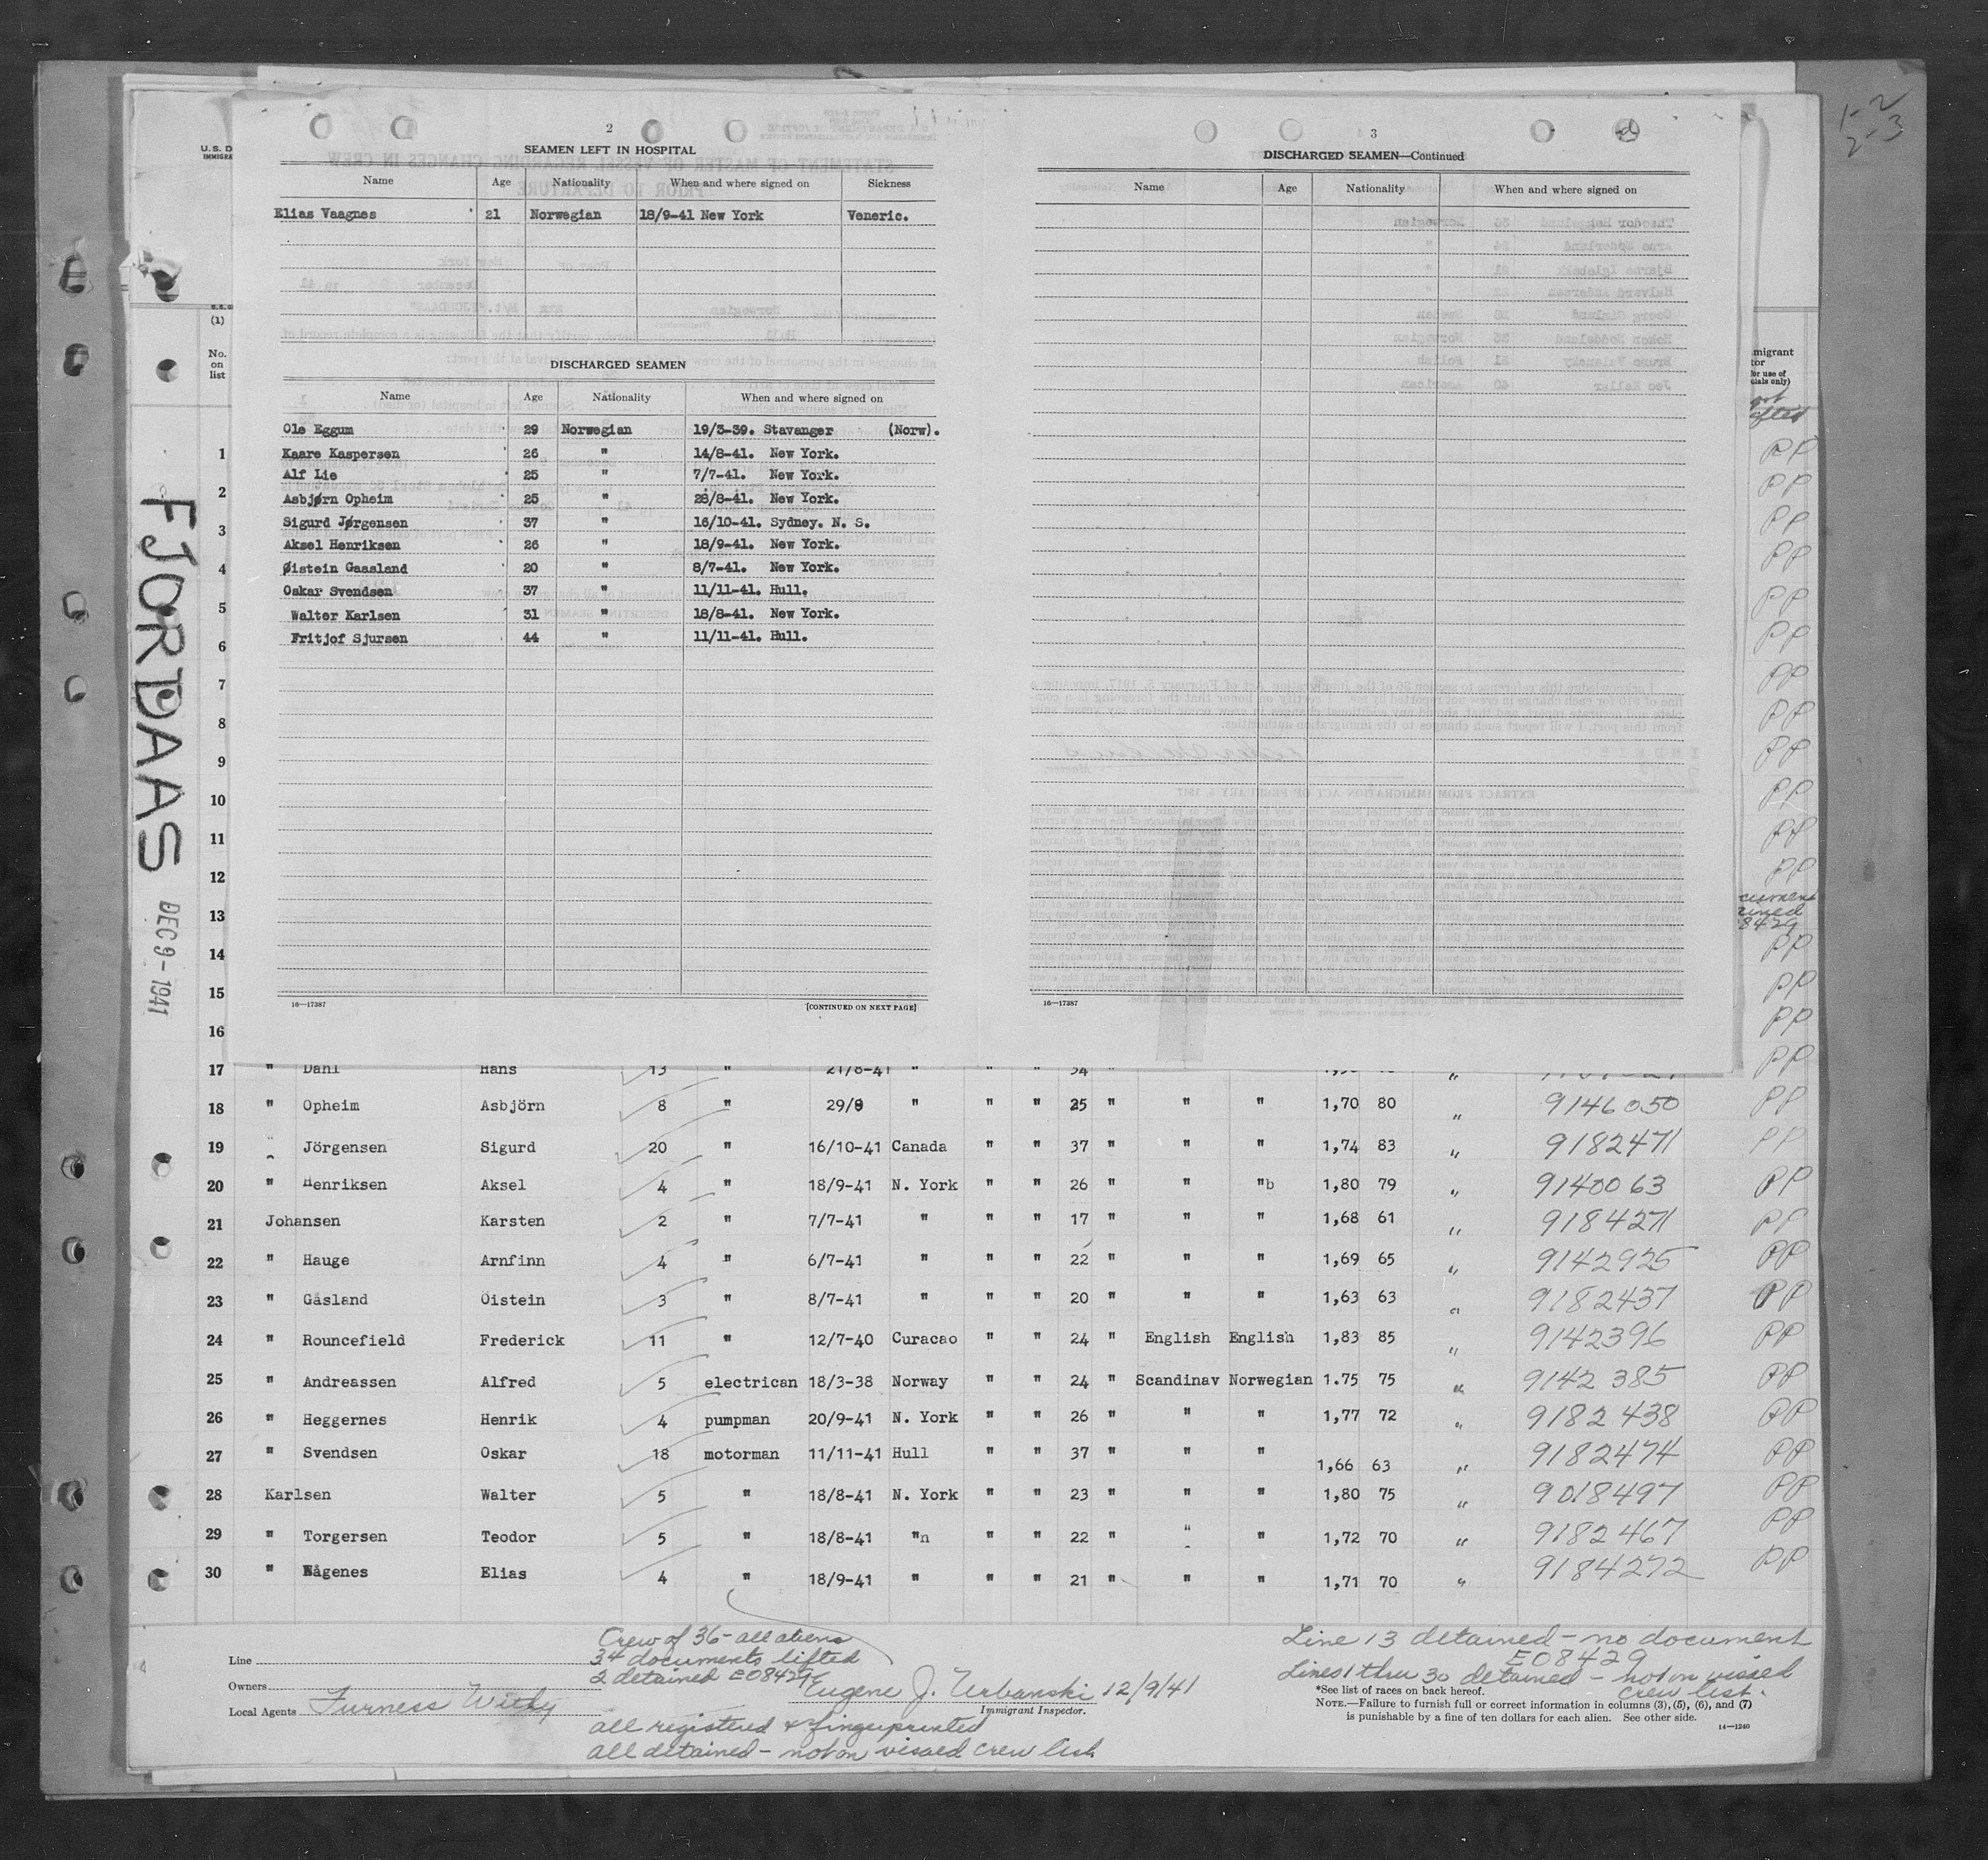 1-2
2-3
FJORDAAS DEC 9-1941
U.S. D
IMMIGRA
(1)
No.
on
list
2
SEAMEN LEFT IN HOSPITAL
Name Age Nationality When and where signed on Sickness
Elias Vaagnes 21 Norwegian 18/9-41 New York Veneric.
DISCHARGED SEAMEN
Name Age Nationality When and where signed on
Ole Eggum 29 Norwegian 19/3-39. Stavanger (Norw).
Kaare Kaspersen 26 " 14/8-41. New York.
Alf Lie 25 " 7/7-41. New York.
Asbjørn Opheim 25 " 28/8-41. New York.
Sigurd Jørgensen 37 " 16/10-41. Sydney. N. S.
Aksel Henriksen 26 " 18/9-41. New York.
Øistein Gaasland 20 " 8/7-41. New York.
Oskar Svendsen 37 " 11/11-41. Hull.
Walter Karlsen 31 " 18/8-41. New York.
Fritjof Sjursen 44 " 11/11-41. Hull.
16—17387 [CONTINUED ON NEXT PAGE]
3
DISCHARGED SEAMEN—Continued
Name Age Nationality When and where signed on
16—17387
migrant
tor
for use of
cials only)
1 PP
2 PP
3 PP
4 PP
5 PP
6 PP
7 PP
8 PP
9 PP
10 PP
11 PP
12 PP
13
8429
14 PP
15 PP
16 PP
17 " Dahl Hans 13 " 21/8-41 " " " 34 " " PP
18 " Opheim Asbjörn 8 " 29/8 " " " 25 " " " 1,70 80 " 9146050 PP
19 " Jörgensen Sigurd 20 " 16/10-41 Canada " " 37 " " " 1,74 83 " 9182471 PP
20 " Henriksen Aksel 4 " 18/9-41 N. York " " 26 " " "b 1,80 79 " 9140063 PP
21 Johansen Karsten 2 " 7/7-41 " " " 17 " " " 1,68 61 " 9184271 PP
22 " Hauge Arnfinn 4 " 6/7-41 " " " 22 " " " 1,69 65 " 9142925 PP
23 " Gåsland Öistein 3 " 8/7-41 " " " 20 " " " 1,63 63 " 9182437 PP
24 " Rouncefield Frederick 11 " 12/7-40 Curacao " " 24 " English English 1,83 85 " 9142396 PP
25 " Andreassen Alfred 5 electrican 18/3-38 Norway " " 24 " Scandinav Norwegian 1.75 75 " 9142385 PP
26 " Heggernes Henrik 4 pumpman 20/9-41 N. York " " 26 " " " 1,77 72 " 9182438 PP
27 " Svendsen Oskar 18 motorman 11/11-41 Hull " " 37 " " " 1,66 63 " 9182474 PP
28 Karlsen Walter 5 " 18/8-41 N. York " " 23 " " " 1,80 75 " 9018497 PP
29 " Torgersen Teodor 5 " 18/8-41 "n " " 22 " " " 1,72 70 " 9182467 PP
30 " Wågenes Elias 4 " 18/9-41 " " " 21 " " " 1,71 70 " 9184272 PP
Crew of 36 - all aliens
34 documents lifted
2 detained E08429
Line
Owners
Local Agents Furness Withy
Eugene J. Urbanski 12/9/41
Immigrant Inspector.
all registered & fingerprinted
all detained - not on visaed crew list
Line 13 detained - no document
E08429
Lines 1 thru 30 detained - not on visaed
crew list.
*See list of races on back hereof.
NOTE.—Failure to furnish full or correct information in columns (3), (5), (6), and (7)
is punishable by a fine of ten dollars for each alien. See other side.
14—1240